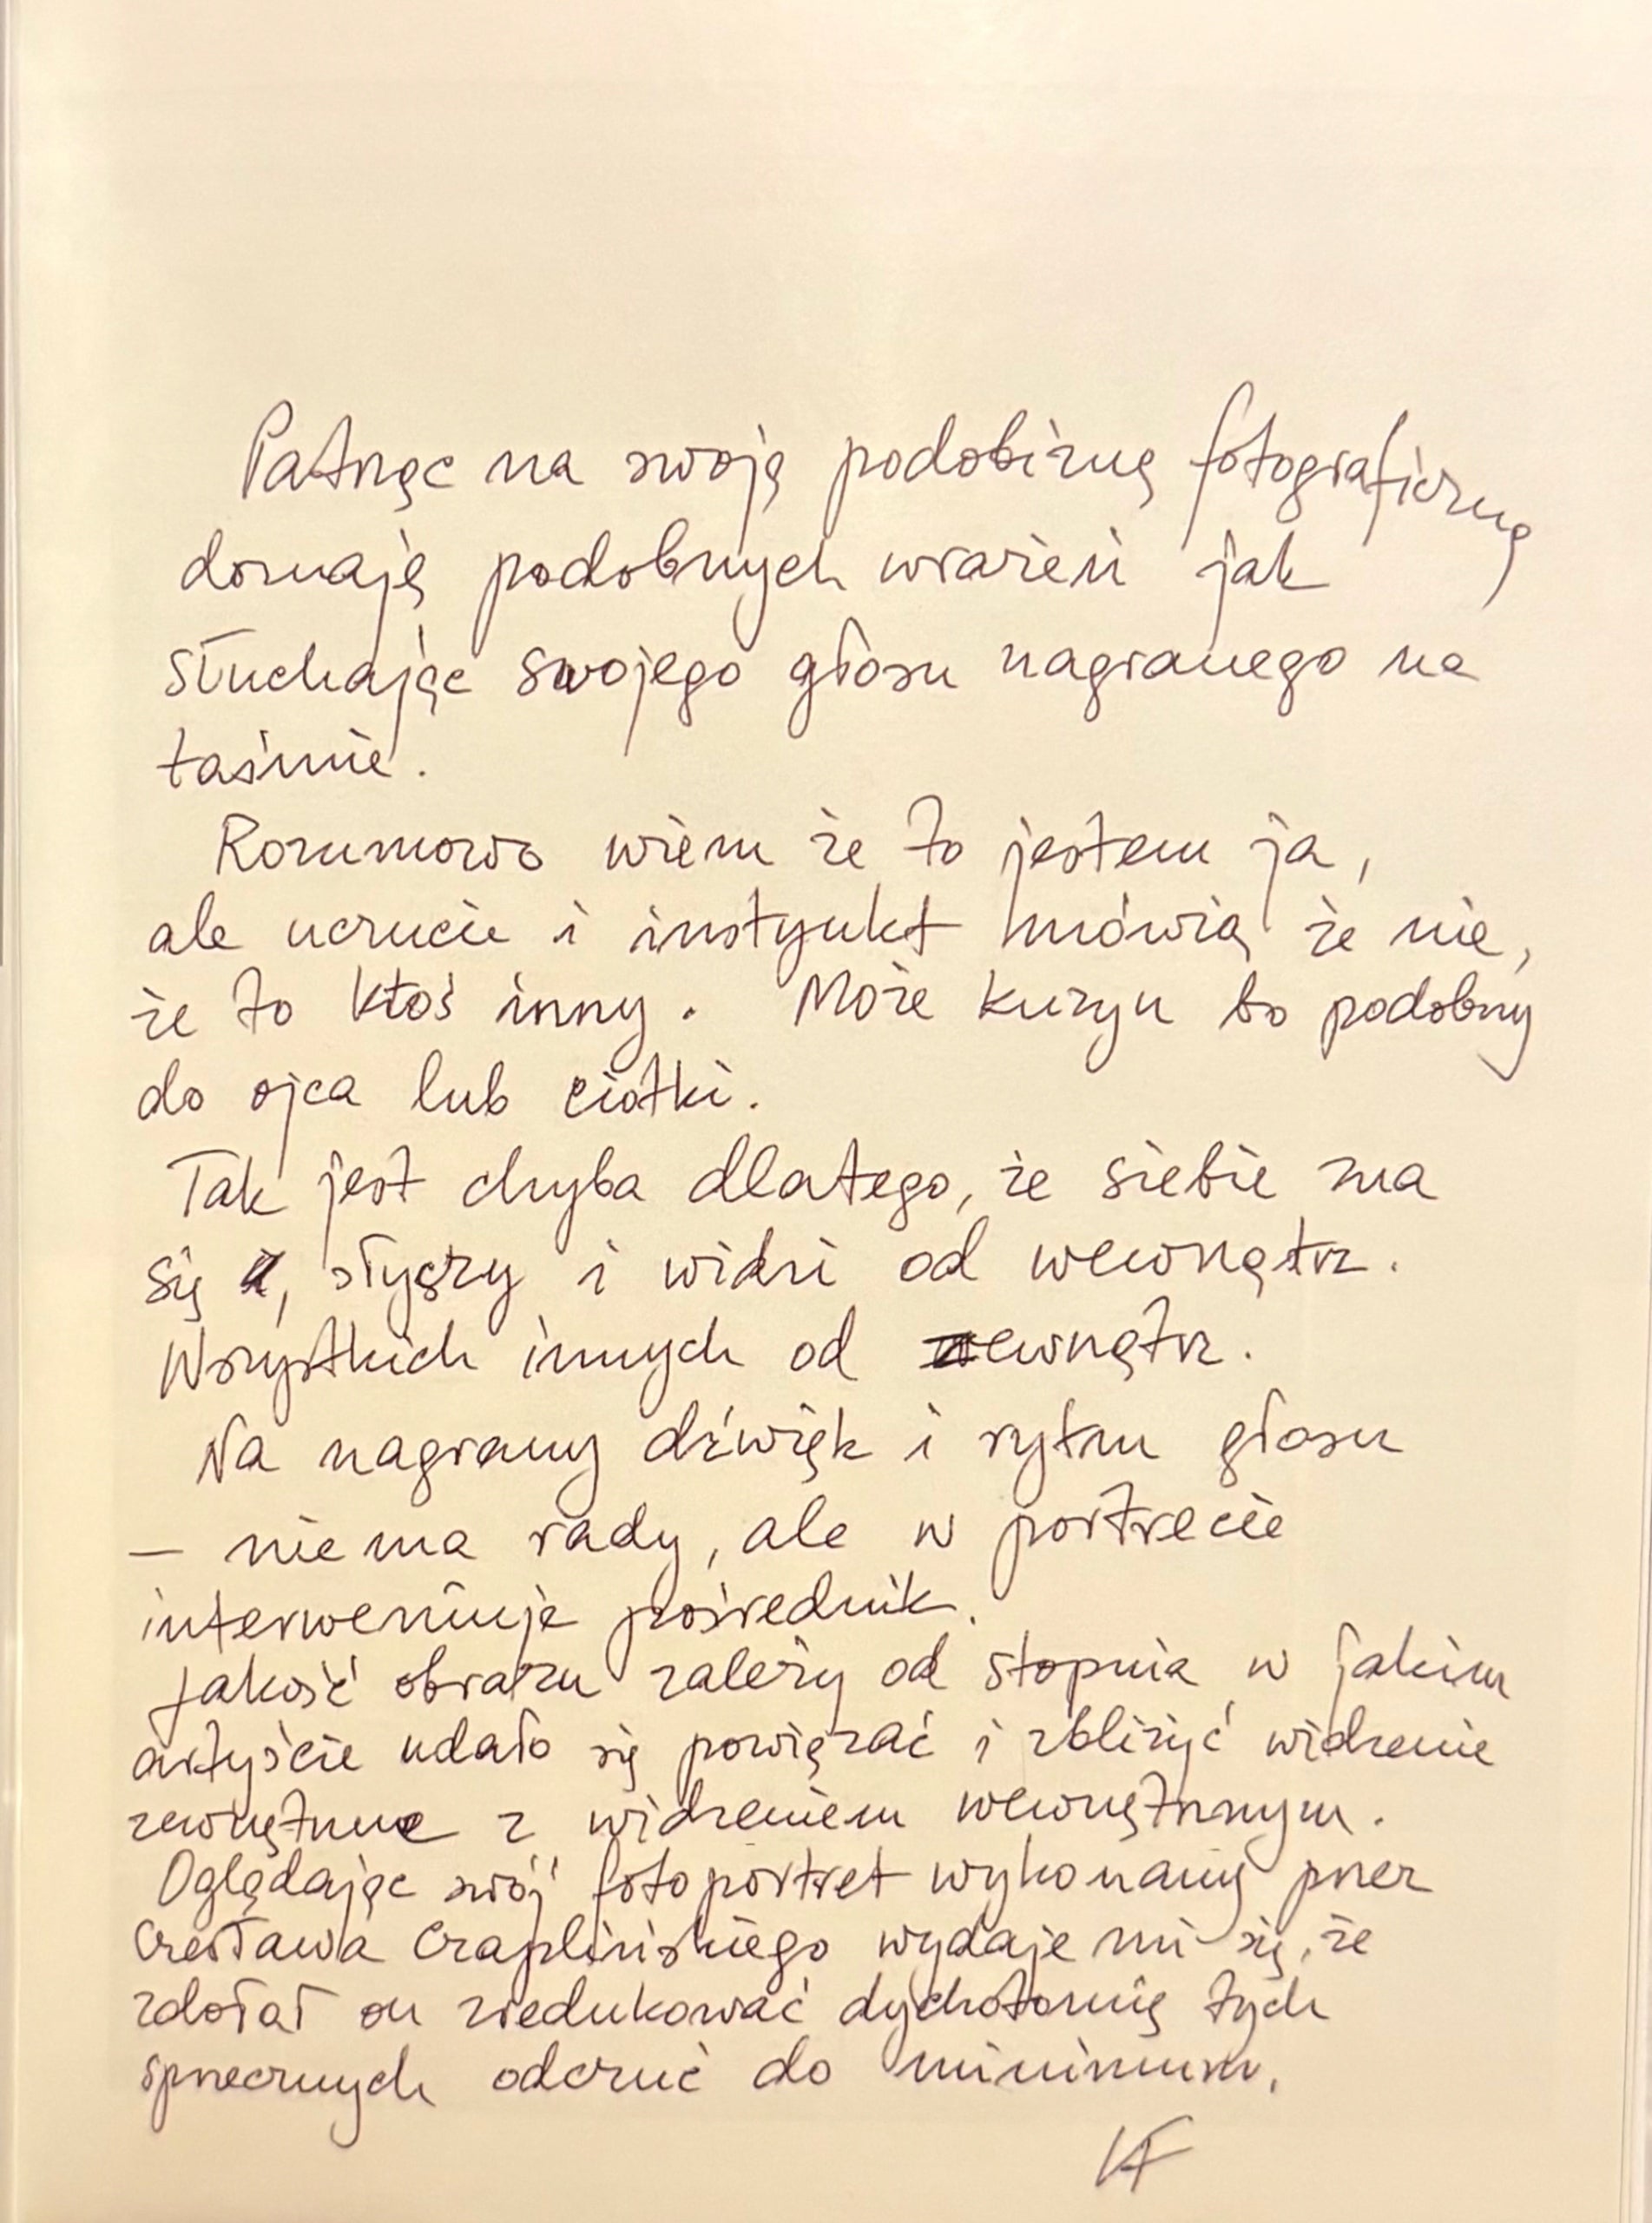 Patrząc na swoją podobiznę fotograficzną
doznaję podobnych wrażeń jak
słuchając swojego głosu nagranego na
taśmie.
Rozumowo wiem że to jestem ja,
ale uczucie i instynkt mówią że nie,
że to ktoś inny. Może kuzyn bo podobny
do ojca lub ciotki.
Tak jest chyba dlatego, że siebie zna
się, słyszy i widzi od wewnątrz.
Wszystkich innych od zewnątrz.
Na nagrany dźwięk i rytm głosu
– nie ma rady, ale w portrecie
interweniuje pośrednik.
Jakość obrazu zależy od stopnia w jakim
artyście udało się powiązać i zbliżyć widzenie
zewnętrzne z widzeniem wewnętrznym.
Oglądając swój fotoportret wykonany przez
Czesława Czaplińskiego wydaje mi się, że
zdołał on zredukować dychotomię tych
sprzecznych odczuć do minimum.